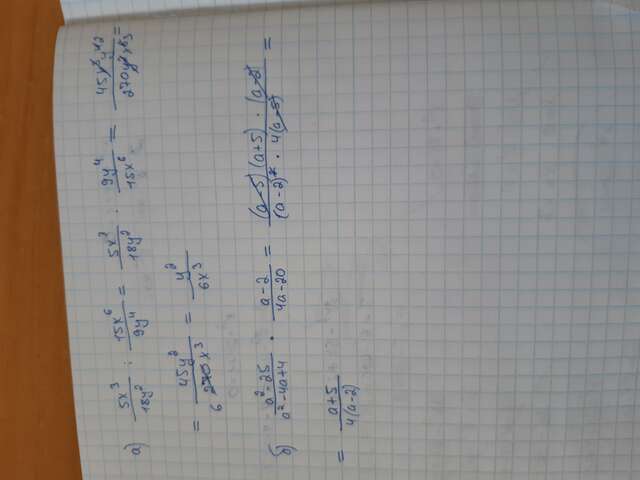 а) 5x³/18y² : 15x⁶/9y⁴ = 5x³/18y² : 9y⁴/15x⁶ = 45x³y⁴²/270y²x⁶³ =
= 45y²/6 270x³ = y²/6x³
б) a²-25/a²-4a+4 · a-2/4a-20 = (a-5)(a+5)·(a-2)/(a-2)²·4(a-5) =
= a+5/4(a-2)